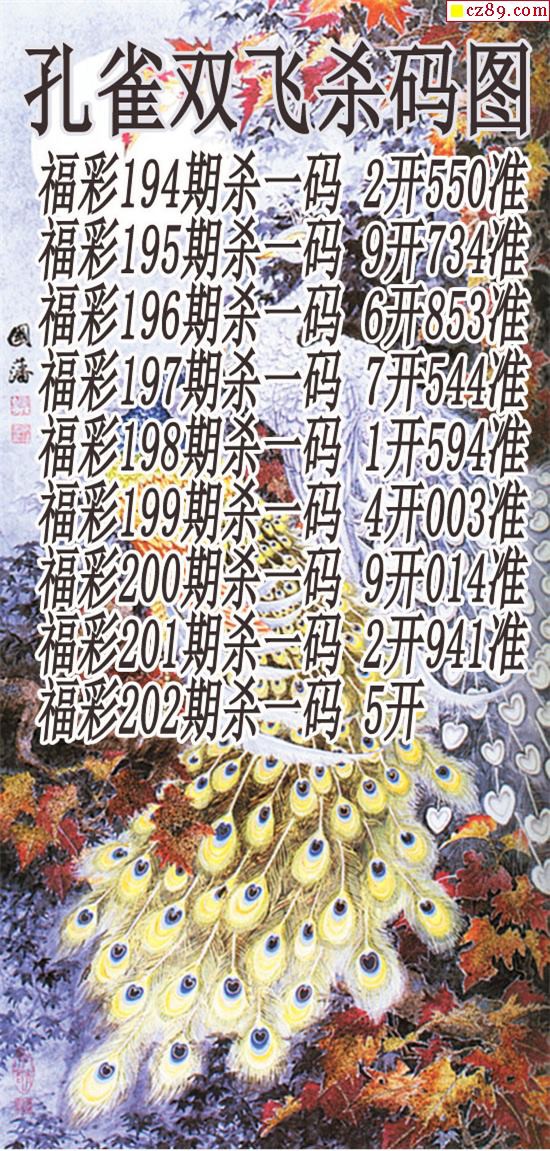 cz89.com
孔雀双飞杀码图
福彩194期杀一码 2开550准
福彩195期杀一码 9开734准
福彩196期杀一码 6开853准
福彩197期杀一码 7开544准
福彩198期杀一码 1开594准
福彩199期杀一码 4开003准
福彩200期杀一码 9开014准
福彩201期杀一码 2开941准
福彩202期杀一码 5开
國藩